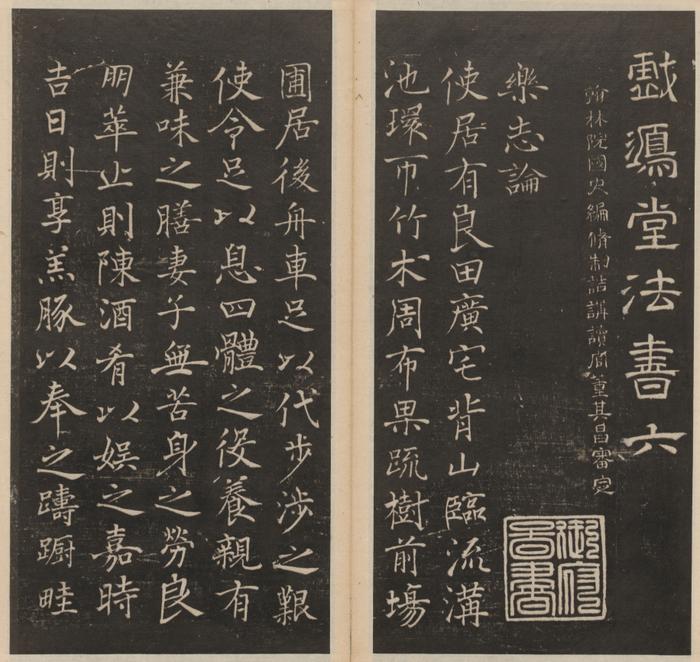 戲鴻堂法書六
翰林院國史編脩制誥講讀官董其昌審定
樂志論
使居有良田廣宅背山臨流溝
池環帀竹木周布果疏樹前場
圃居後舟車足以代步涉之艱
使令足以息四體之役養親有
兼味之膳妻子無苦身之勞良
朋萃止則陳酒肴以娛之嘉時
吉日則享羔豚以奉之躊蹰畦